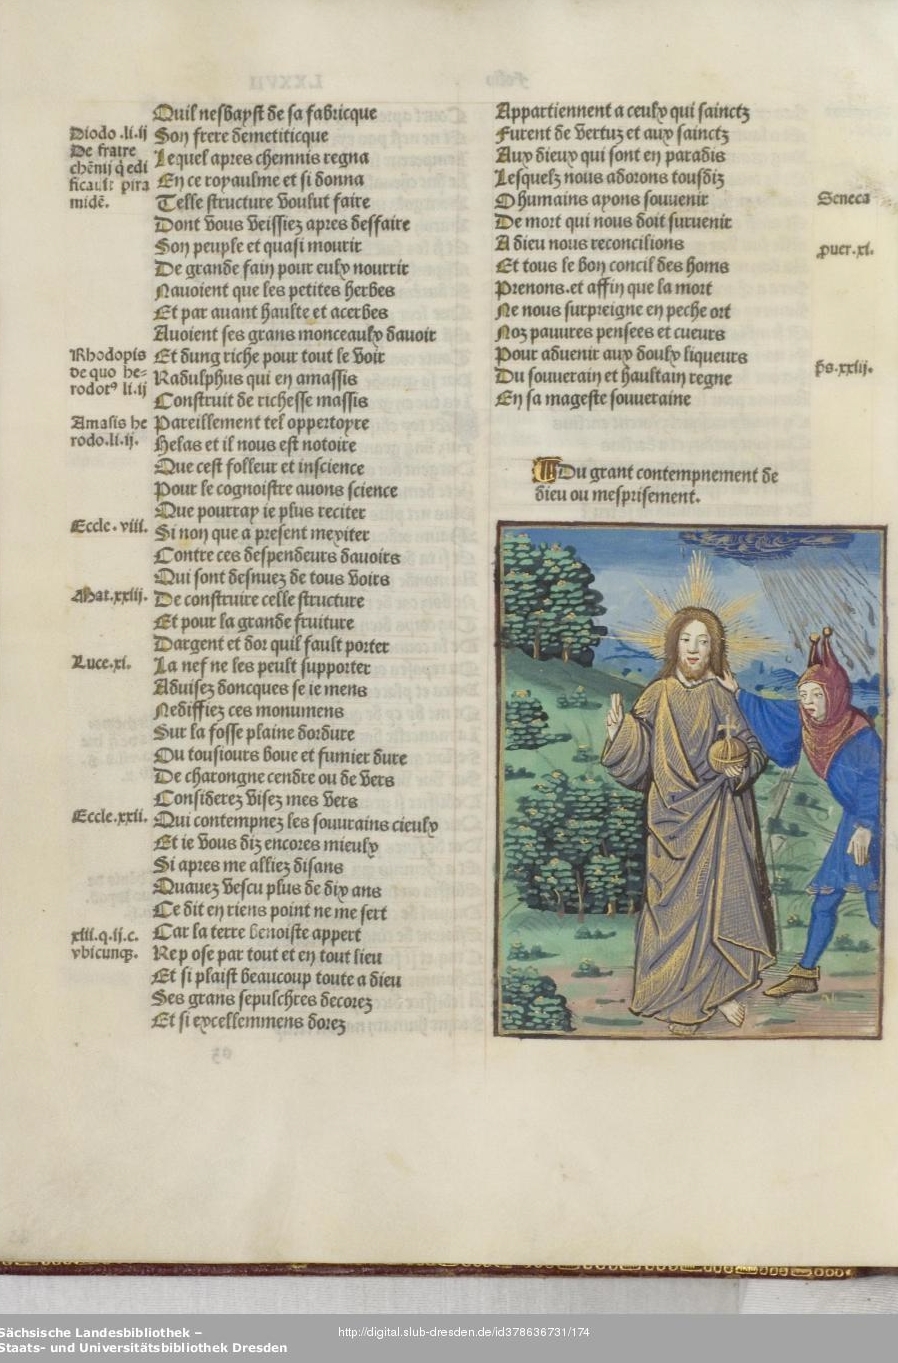 Quil nesbayst de sa fabricque
Son frere demetiticque
Lequel apres chemnis regna
En ce royaulme et si donna
Telle structure voulut faire
Dont vous veissiez apres deffaire
Son peuple et quasi mourir
De grande fain pour eulx nourrir
Nauoient que les petites herbes
Et par auant haulte et acerbes
Auoient ses grans monceaulx dauoir
Et dung riche pour tout le voir
Radulphus qui en amassis
Construit de richesse massis
Pareillement tel oppertoyre
Helas et il nous est notoire
Que cest folleur et inscience
Pour le cognoistre auons science
Que pourray ie plus reciter
Si non que a present meriter
Contre ces despendeurs dauoirs
Qui sont desnuez de tous voirs
De construire celle structure
Et pour la grande fruiture
Dargent et dor quil fault porter
La nef ne les peult supporter
Aduisez doncques se ie mens
Nediffiez ces monumens
Sur la fosse plaine dordure
Ou tousiours boue et fumier dure
De charongne cendre ou de vers
Considerez visez mes vers
Qui contempnez les souurains cieulx
Et ie vous diz encores mieulx
Si apres me alliez disans
Quauez vescu plus de dix ans
Ce dit en riens point ne me sert
Car la terre benoiste appert
Rep ose par tout et en tout lieu
Et si plaist beaucoup toute a dieu
Ses grans sepulchres decorez
Et si excellemmens dorez
Diodo .li.ij
De fratre
chēnij q̇ edi
ficauit pira
midē.
Rhodopis
de quo he-
rodotꝰ li.ij
Amasis he
rodo.li.ij.
Eccle. viii.
Mat.xxiij.
Luce.xi.
Eccle.xxii.
xiii.q.ij.c.
vbicunqꝫ.
Appartiennent a ceulx qui sainctz
Furent de vertuz et aux sainctz
Aux dieux qui sont en paradis
Lesquelz nous adorons tousdiz
O humains ayons souuenir
De mort qui nous doit suruenir
A dieu nous reconcilions
Et tous le bon concil des homs
Prenons.et affin que la mort
Ne nous surpreigne en peche ort
Noz pauures pensees et cueurs
Pour aduenir aux doulx liqueurs
Du souuerain et haultain regne
En sa mageste souueraine
Seneca
ꝓuer.xi.
p̄s.xxiij.
Du grant contempnement de
dieu ou mesprisement.
Sächsische Landesbibliothek –
Staats- und Universitätsbibliothek Dresden
http://digital.slub-dresden.de/id378636731/174